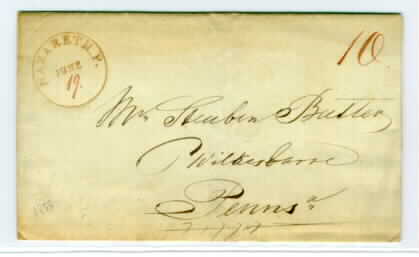 NAZARETH. P.
JUNE
19.
10.
Mr Steuben Butler
Wilkesbarre
Penns a